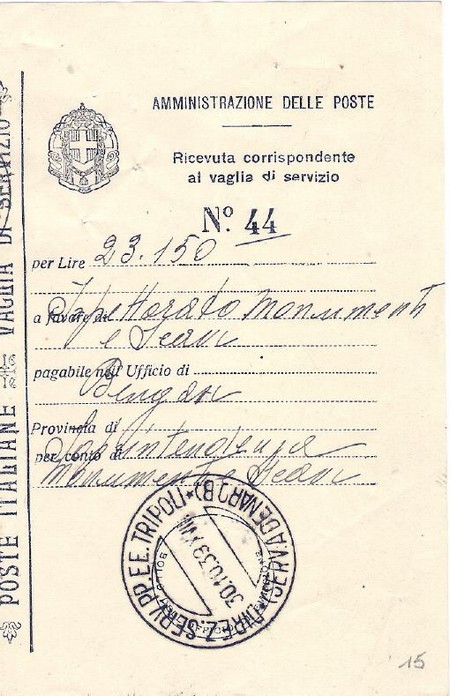 POSTE ITALIANE VAGLIA DI SERVIZIO
AMMINISTRAZIONE DELLE POSTE
Ricevuta corrispondente
al vaglia di servizio
N.° 44
per Lire 23.150
a favore di Ispettorato Monumenti
e Scavi
pagabile nell'Ufficio di
Bengasi
Provincia di
per conto di Soprintendenza
Monumenti e Scavi
DIREZ. SERV. PP. EE. TRIPOLI * (SERV. DENARO B) *
30.10.39 XVIII
15